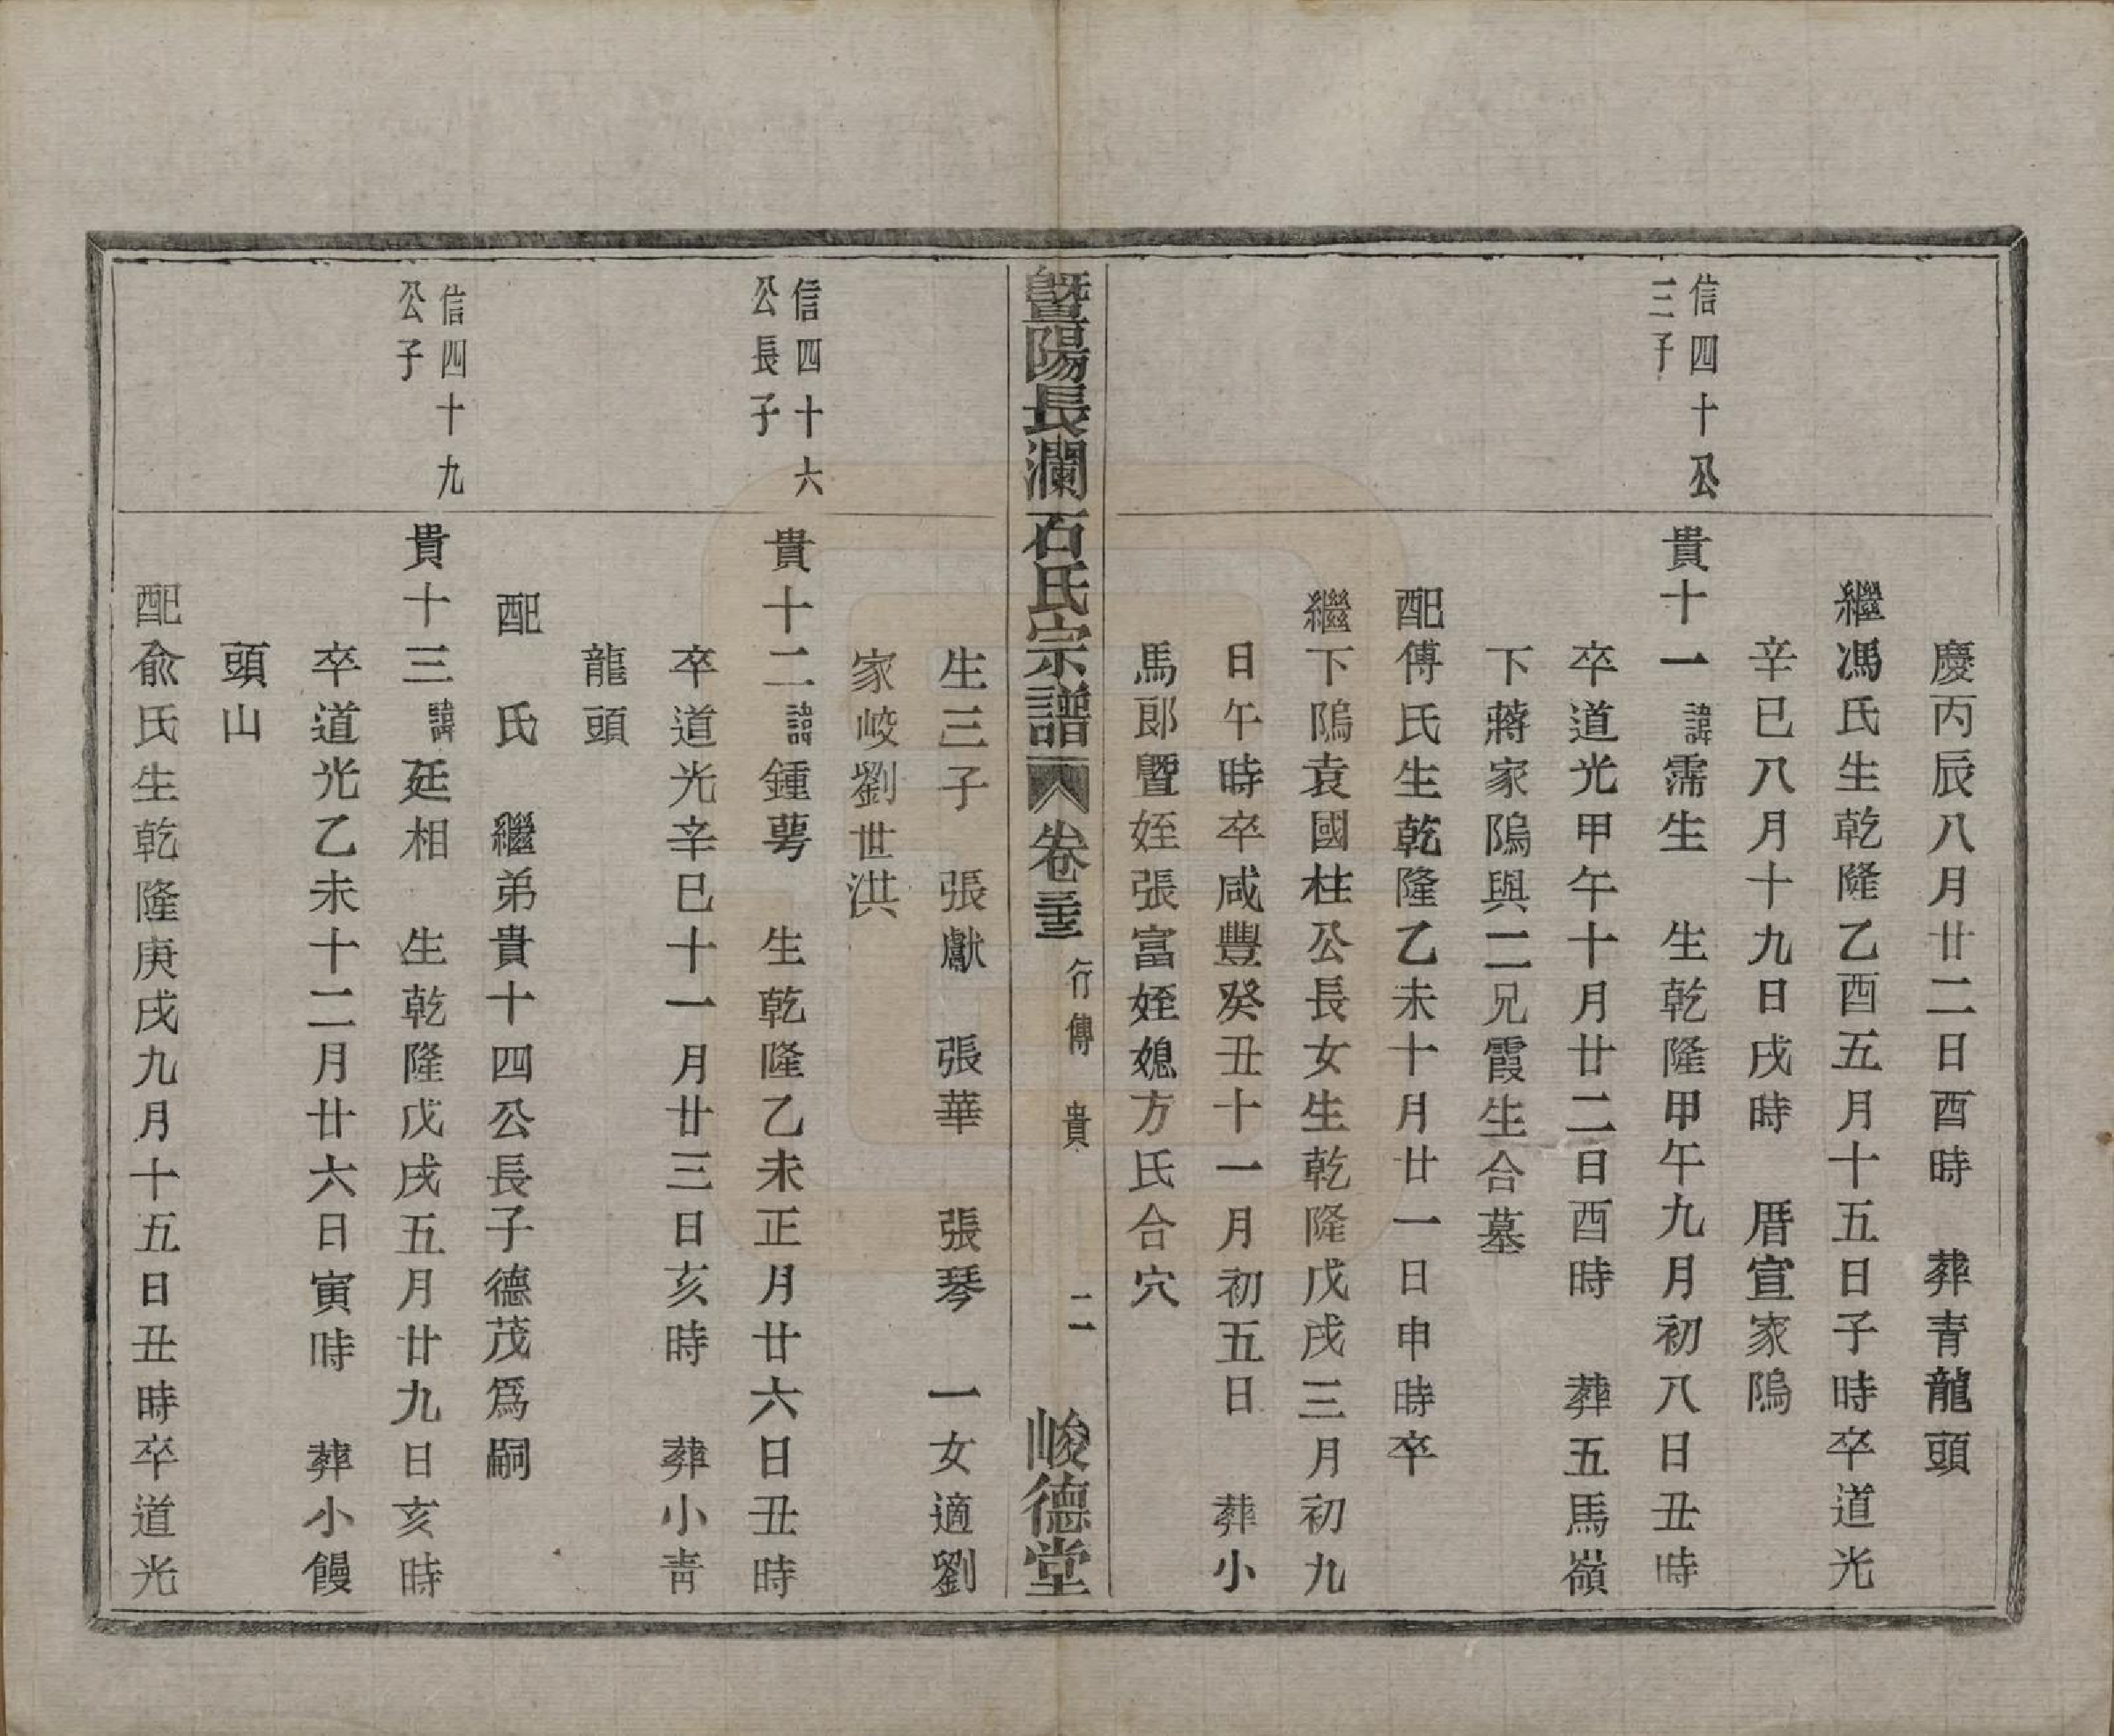 慶丙辰八月廿二日酉時　葬青龍頭
繼馮氏生乾隆乙酉五月十五日子時卒道光
辛巳八月十九日戌時　厝宣家隖
信四十公
三子
貴十一諱霈生　生乾隆甲午九月初八日丑時
卒道光甲午十月廿二日酉時　葬五馬嶺
下蔣家隖與二兄霞生合墓
配傅氏生乾隆乙未十月廿一日申時卒
繼下隖袁國柱公長女生乾隆戊戌三月初九
日午時卒咸豐癸丑十一月初五日　葬小
馬郎暨姪張富姪媳方氏合穴
暨陽長瀾石氏宗譜　卷三十三　行傳　貴　二　峻德堂
生三子　張獻　張華　張琴　一女適劉
家峧劉世洪
信四十六
公長子
貴十二諱鍾萼　生乾隆乙未正月廿六日丑時
卒道光辛巳十一月廿三日亥時　葬小青
龍頭
配　氏　繼弟貴十四公長子德茂爲嗣
信四十九
公子
貴十三諱廷相　生乾隆戊戌五月廿九日亥時
卒道光乙未十二月廿六日寅時　葬小饅
頭山
配俞氏生乾隆庚戌九月十五日丑時卒道光